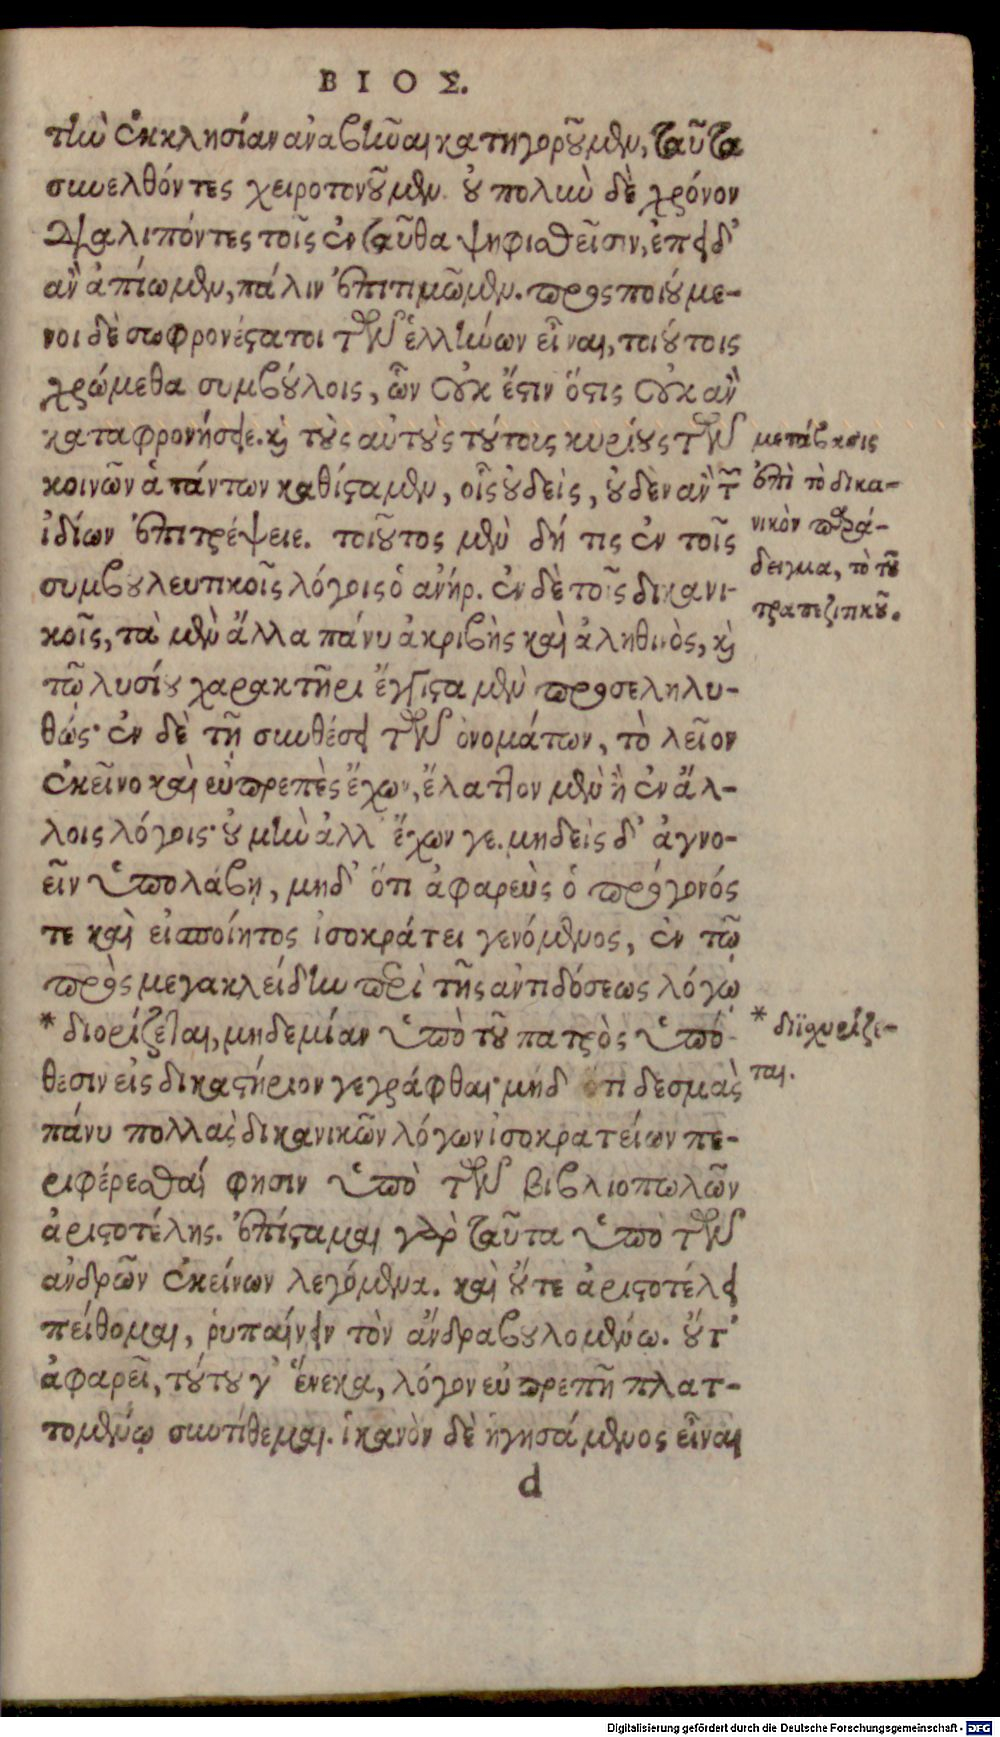 ΒΙΟΣ.
τὴν ἐκκλησίαν ἀναβῆναι κατηγοροῦμεν, ταῦτα
συνελθόντες χειροτονοῦμεν. οὐ πολὺν δὲ χρόνον
διαλιπόντες τοῖς ἐνταῦθα ψηφισθεῖσιν, ἐπειδ'
ἂν ἀπίωμεν, πάλιν ἐπιτιμῶμεν. προσποιούμε-
νοι δὲ σωφρονέστατοι τῶν ἑλλήνων εἶναι, τοιούτοις
χρώμεθα συμβούλοις, ὧν οὐκ ἔστιν ὅστις οὐκ ἂν
καταφρονήσειε. καὶ τοὺς αὐτοὺς τούτους κυρίους τῶν
κοινῶν ἁπάντων καθίσταμεν, οἷς οὐδεὶς, οὐδὲν ἂν τῶν
ἰδίων ἐπιτρέψειε. τοιοῦτος μὲν δή τις ἐν τοῖς
συμβουλευτικοῖς λόγοις ὁ ἀνήρ. ἐν δὲ τοῖς δικανι-
κοῖς, τὰ μὲν ἄλλα πάνυ ἀκριβὴς καὶ ἀληθινὸς, καὶ
τῷ λυσίου χαρακτῆρι ἔγγιστα μὲν προσεληλυ-
θώς· ἐν δὲ τῇ συνθέσει τῶν ὀνομάτων, τὸ λεῖον
ἐκεῖνο καὶ εὐπρεπὲς ἔχων, ἔλαττον μὲν ἢ ἐν ἄλ-
λοις λόγοις· οὐ μὴν ἀλλ' ἔχων γε. μηδεὶς δ' ἀγνο-
εῖν ὑπολάβῃ, μηδ' ὅτι ἀφαρεὺς ὁ πρόγονός
τε καὶ εἰσποίητος ἰσοκράτει γενόμενος, ἐν τῷ
πρὸς μεγακλείδην περὶ τῆς ἀντιδόσεως λόγῳ
* διορίζεται, μηδεμίαν ὑπὸ τοῦ πατρὸς ὑπό-
θεσιν εἰς δικαστήριον γεγράφθαι· μηδ' ὅτι δεσμὰς
πάνυ πολλὰς δικανικῶν λόγων ἰσοκρατείων πε-
ριφέρεσθαί φησιν ὑπὸ τῶν βιβλιοπωλῶν
ἀριστοτέλης. ἐπίσταμαι γὰρ ταῦτα ὑπὸ τῶν
ἀνδρῶν ἐκείνων λεγόμενα. καὶ οὔτε ἀριστοτέλει
πείθομαι, ῥυπαίνειν τὸν ἄνδρα βουλομένῳ. οὔτ'
ἀφαρεῖ, τούτου γ' ἕνεκα, λόγον εὐπρεπῆ πλατ-
τομένῳ συντίθεμαι. ἱκανὸν δὲ ἡγησάμενος εἶναι
d
μετάβασις
ἐπὶ τὸ δικα-
νικὸν παρά-
δειγμα, τὸ τοῦ
τραπεζιτικοῦ.
* διϊσχυρίζε-
ται.
Digitalisierung gefördert durch die Deutsche Forschungsgemeinschaft - DFG